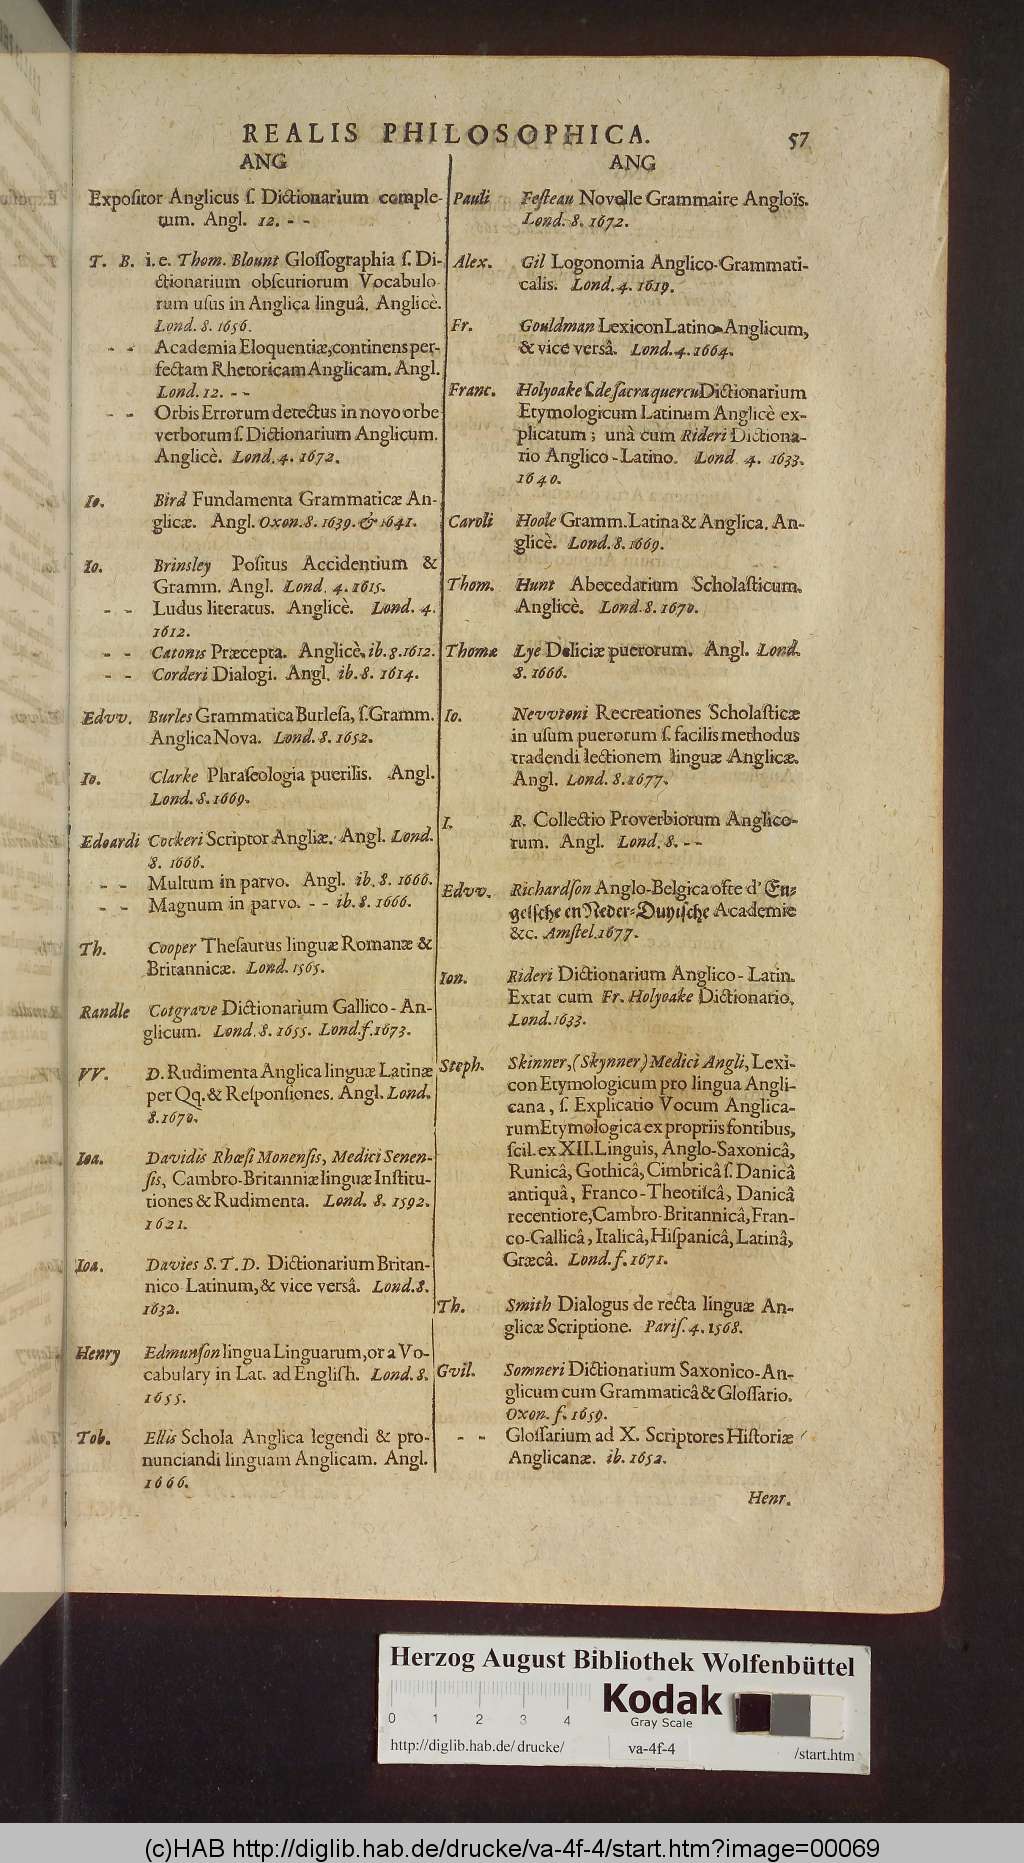 REALIS PHILOSOPHICA. 57
ANG
Expositor Anglicus ſ. Dictionarium comple-
tum. Angl. 12. - -
T. B. i. e. Thom. Blount Gloſſographia ſ. Di-
ctionarium obſcuriorum Vocabulo
rum uſus in Anglica linguâ. Anglicè.
Lond. 8. 1656.
- - Academia Eloquentiæ, continens per-
fectam Rhetoricam Anglicam. Angl.
Lond. 12. - -
- - Orbis Errorum detectus in novo orbe
verborum ſ. Dictionarium Anglicum.
Anglicè. Lond. 4. 1672.
Io. Bird Fundamenta Grammaticæ An-
glicæ. Angl. Oxon. 8. 1639. & 1641.
Io. Brinsley Poſitus Accidentium &
Gramm. Angl. Lond. 4. 1615.
- - Ludus literatus. Anglicè. Lond. 4.
1612.
- - Catonis Præcepta. Anglicè. ib. 8. 1612.
- - Corderi Dialogi. Angl. ib. 8. 1614.
Edvv. Burles Grammatica Burleſa, ſ. Gramm.
Anglica Nova. Lond. 8. 1652.
Io. Clarke Phraſeologia puerilis. Angl.
Lond. 8. 1669.
Edoardi Cockeri Scriptor Angliæ. Angl. Lond.
8. 1666.
- - Multum in parvo. Angl. ib. 8. 1666.
- - Magnum in parvo. - - ib. 8. 1666.
Th. Cooper Theſaurus linguæ Romanæ &
Britannicæ. Lond. 1565.
Randle Cotgrave Dictionarium Gallico-An-
glicum. Lond. 8. 1655. Lond. f. 1673.
VV. D. Rudimenta Anglica linguæ Latinæ
per Qq. & Reſponſiones. Angl. Lond.
8. 1670.
Ioa. Davidis Rhæſi Monenſis, Medici Senen-
ſis, Cambro-Britanniæ linguæ Inſtitu-
tiones & Rudimenta. Lond. 8. 1592.
1621.
Ioa. Davies S. T. D. Dictionarium Britan-
nico Latinum, & vice versâ. Lond. 8.
1632.
Henry Edmunſon lingua Linguarum, or a Vo-
cabulary in Lat. ad Engliſh. Lond. 8.
1655.
Tob. Ellis Schola Anglica legendi & pro-
nunciandi linguam Anglicam. Angl.
1666.
ANG
Pauli Feſteau Novelle Grammaire Angloïs.
Lond. 8. 1672.
Alex. Gil Logonomia Anglico-Grammati-
calis. Lond. 4. 1619.
Fr. Gouldman Lexicon Latino-Anglicum,
& vice versâ. Lond. 4. 1664.
Franc. Holyoake ſ. de ſacra quercu Dictionarium
Etymologicum Latinum Anglicè ex-
plicatum; unà cum Rideri Dictiona-
rio Anglico-Latino. Lond 4. 1633.
1640.
Caroli Hoole Gramm. Latina & Anglica. An-
glicè. Lond. 8. 1669.
Thom. Hunt Abecedarium Scholaſticum.
Anglicè. Lond. 8. 1670.
Thomæ Lye Deliciæ puerorum. Angl. Lond.
8. 1666.
Io. Nevvtoni Recreationes Scholaſticæ
in uſum puerorum ſ. facilis methodus
tradendi lectionem linguæ Anglicæ.
Angl. Lond. 8. 1677.
I. R. Collectio Proverbiorum Anglico-
rum. Angl. Lond. 8. - -
Edvv. Richardſon Anglo-Belgica ofte d' En-
gelſche en Neder-Duytſche Academie
&c. Amſtel. 1677.
Ion. Rideri Dictionarium Anglico-Latin.
Extat cum Fr. Holyoake Dictionario.
Lond. 1633.
Steph. Skinner, (Skynner) Medici Angli, Lexi-
con Etymologicum pro lingua Angli-
cana, ſ. Explicatio Vocum Anglica-
rum Etymologica ex propriis fontibus,
ſcil. ex XII. Linguis, Anglo-Saxonicâ,
Runicâ, Gothicâ, Cimbricâ ſ. Danicâ
antiquâ, Franco-Theotiſcâ, Danicâ
recentiore, Cambro-Britannicâ, Fran-
co-Gallicâ, Italicâ, Hiſpanicâ, Latinâ,
Græcâ. Lond. f. 1671.
Th. Smith Dialogus de recta linguæ An-
glicæ Scriptione. Pariſ. 4. 1568.
Gvil. Somneri Dictionarium Saxonico-An-
glicum cum Grammaticâ & Gloſſario.
Oxon. f. 1659.
- - Gloſſarium ad X. Scriptores Hiſtoriæ
Anglicanæ. ib. 1652.
Henr.
Herzog August Bibliothek Wolfenbüttel
Kodak
Gray Scale
0 1 2 3 4
http://diglib.hab.de/drucke/ va-4f-4 /start.htm
(c)HAB http://diglib.hab.de/drucke/va-4f-4/start.htm?image=00069